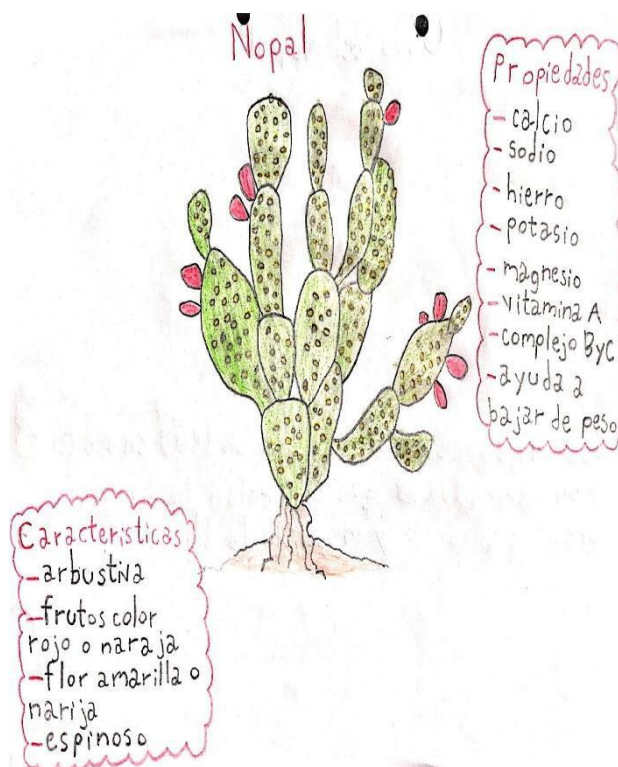 Nopal
Propiedades
- calcio
- sodio
- hierro
- potasio
- magnesio
- vitamina A
- complejo ByC
- ayuda a
bajar de peso
Caracteristicas
- arbustiva
- frutos color
rojo o naraja
- flor amarilla o
narija
- espinoso